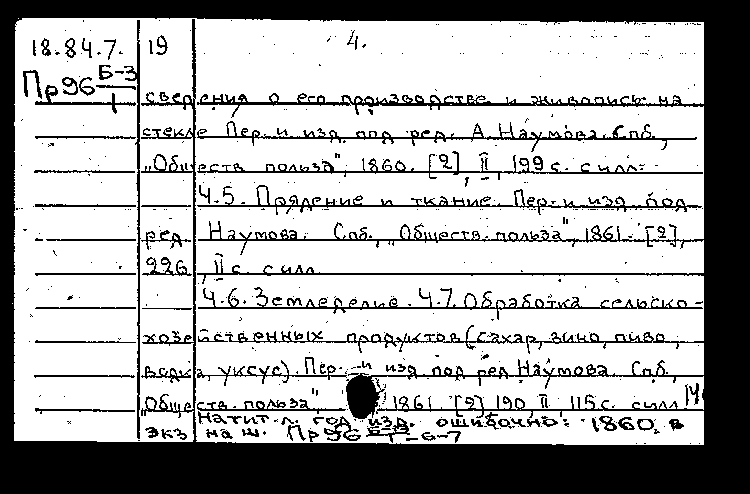 18.84.7. 19 4.
Пр96 Б-3/1
сведения о его производстве и живопись на
стекле Пер. и изд. под ред. А. Наумова. Спб.,
„Обществ польза", 1860. [2], II, 199 с. с илл.
Ч.5. Прядение и ткание. Пер. и изд под
ред. Наумова. Спб., „Обществ. польза", 1861. [2],
226, II с. с илл.
Ч.6. Земледелие. Ч.7. Обработка сельско-
хозяйственных продуктов (сахар, вино, пиво,
водка, уксус). Пер. и изд под ред Наумова. Спб.,
„Обществ. польза", 1861 [2] 190, II 115 с. с илл
На тит. л. год изд. ошибочно: 1860. в
экз на ш. Пр96